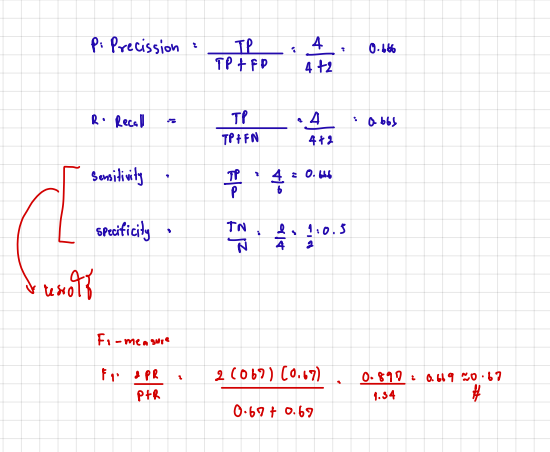 P: Precission = TP / TP + FP = 4 / 4 + 2 = 0.666
R: Recall = TP / TP + FN = 4 / 4 + 2 = 0.665
Sensitivity = TP / P = 4 / 6 = 0.666
Specificity = TN / N = 2 / 4 = 1 / 2 = 0.5
F1 - measure
F1 = 2 PR / P + R = 2 (0.67) (0.67) / 0.67 + 0.67 = 0.897 / 1.34 = 0.669 ≈ 0.67 #